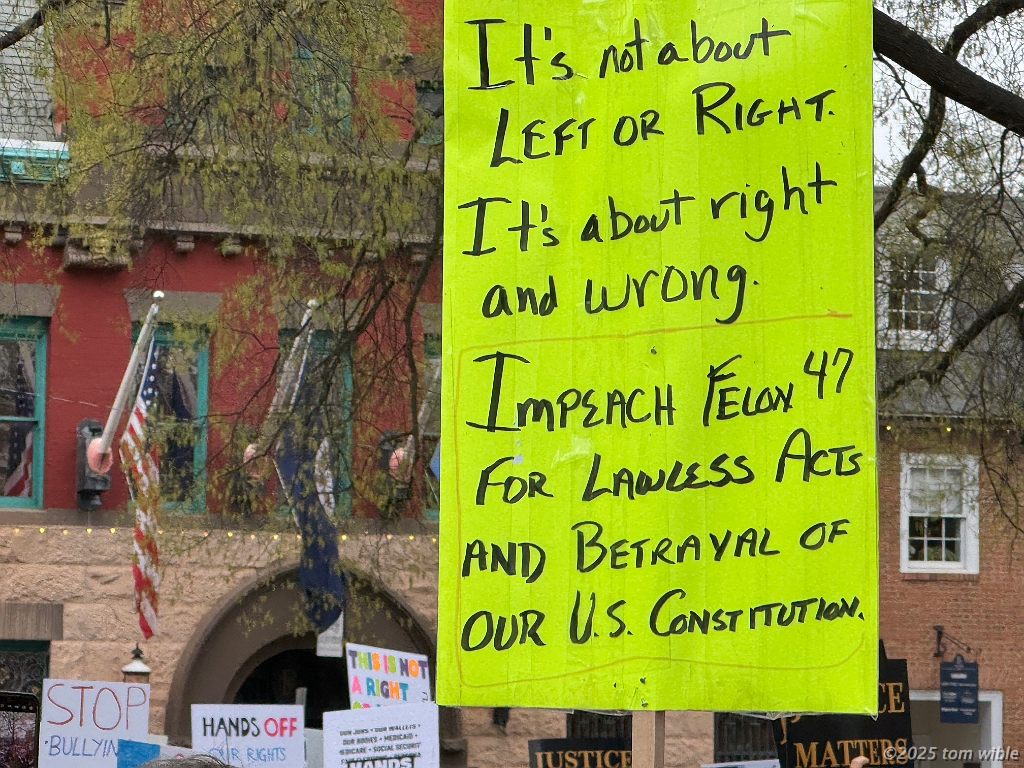 It's not about
LEFT OR RIGHT.
It's about right
and wrong.
IMPEACH FELON 47
FOR LAWLESS ACTS
AND BETRAYAL OF
OUR U.S. CONSTITUTION.
THIS IS NOT
A RIGHT
STOP
HANDS OFF
OUR RIGHTS
OUR JOBS • OUR WALLETS
OUR BODIES • MEDICAID
MEDICARE • SOCIAL SECURITY
HANDS
JUSTICE
MATTERS
©2025 tom wible